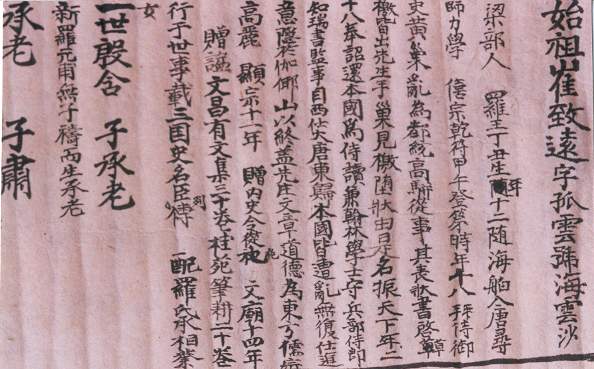 始祖崔致遠字孤雲號海雲沙
梁部人 羅王丁丑生年十二隨海舶入唐尋
師力學 僖宗乾符甲午登第時年十八 拜侍御
史黃巢亂為都統高騈從事其表狀書啓草
檄皆出先生手巢見檄墮牀由是名振天下年二
十八奉詔還本國為侍讀兼翰林學士守兵部侍郎
知瑞書監事自西仕大唐東歸本國皆遭亂無復仕進
意隱於伽倻山以終盖先生文章道德為東方儒宗
高麗 顯宗十一年 贈內史令從祀 文廟十四年
贈謚文昌有文集三十卷桂苑筆耕二十卷
行于世事載三国史名臣列傳 配羅氏承相業
女
一世殷含 子承老
新羅元甫無子禱而生承老
承老 子肅